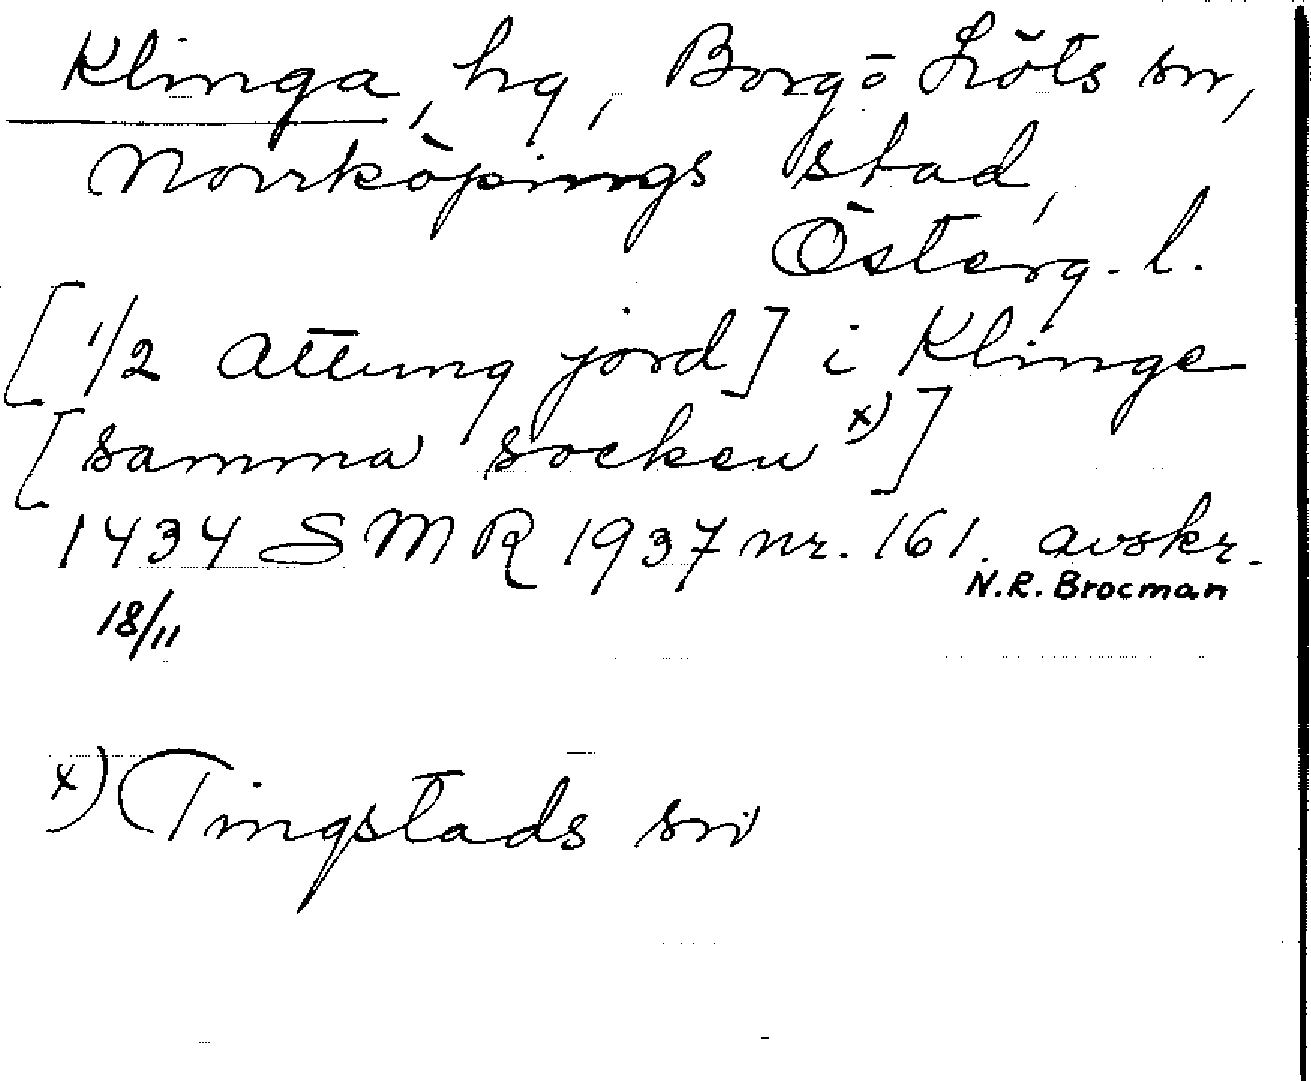 Klinga, hg, Borg o Löts sn,
Norrköpings stad,
Österg. l.
[1/2 Attung jord] i Klinge
[samma socken x)]
1434 SMR 1937 nr. 161. avskr.
N.R. Brocman
18/11
x) Tingstads sn